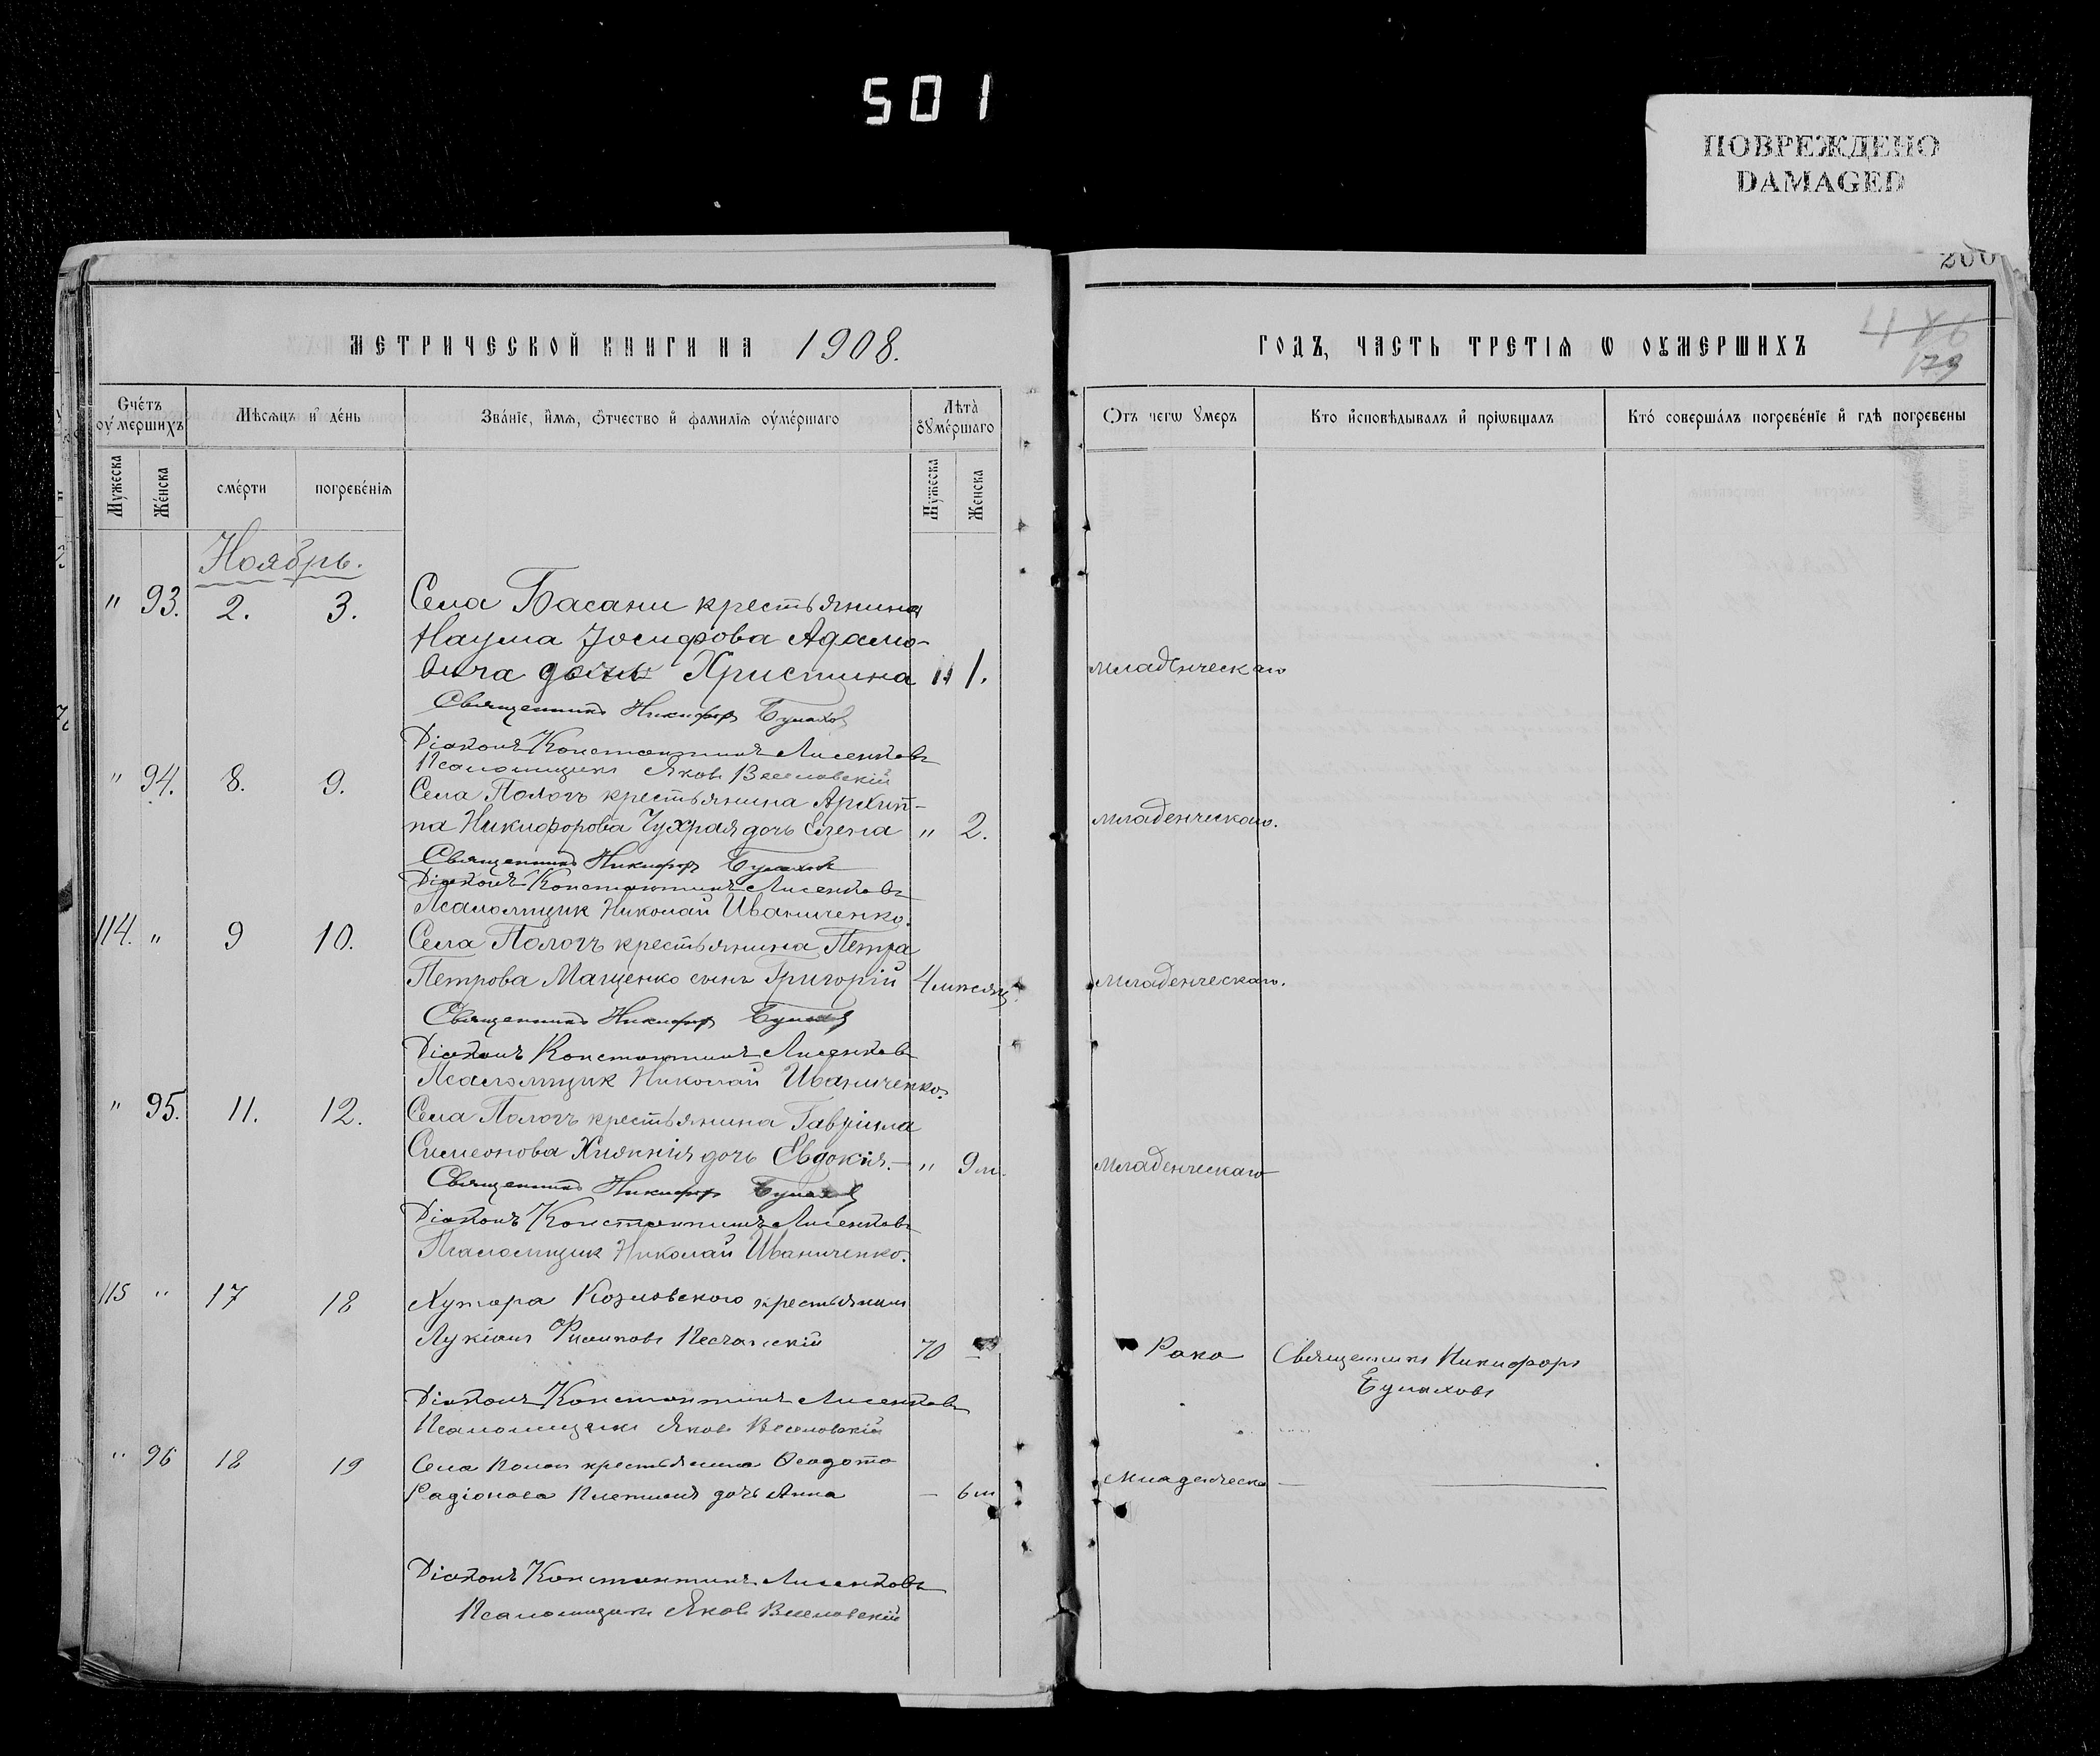 501
ПОВРЕЖДЕНО
DAMAGED
200
МЕТРИЧЕСКОЙ КНИГИ НА 1908.
ГОДЪ, ЧАСТЬ ТРЕТІѦ Ѡ ОУМЕРШИХЪ
486
179
Счетъ оумершихъ
Мѣсяцъ и день
Званіе, имя, отчество и фамилія оумершаго
Лѣта оумершаго
Отъ чегѡ умеръ
Кто исповѣдывалъ и пріѡбщалъ
Кто совершалъ погребеніе и гдѣ погребены
Мужеска
Женска
смерти
погребенія
Мужеска
Женска
Ноябрь.
" 93. 2. 3. Села Басани крестьянина
Наума Іосифова Адамо-
вича дочь Христина " 1. Младенческаго
Священникъ Никифоръ Булахов
Діаконъ Константинъ Лисенковъ
Псаломщикъ Яковъ Веселовскій
" 94. 8. 9. Села Пологъ крестьянина Архип-
па Никифорова Чухрая дочь Елена " 2. младенческаго.
Священникъ Никифоръ Булахов
Діаконъ Константинъ Лисенковъ
Псаломщик Николай Иваниченко.
114. " 9 10. Села Пологъ крестьянина Петра
Петрова Мащенко сынъ Григорій 4 мѣсяц. Младенческаго.
Священникъ Никифоръ Булахов
Діаконъ Константинъ Лисенковъ
Псаломщик Николай Иваниченко.
" 95. 11. 12. Села Пологъ крестьянина Гавріила
Симеонова дочь Евдокія. " 9 м. Младенческаго
Священникъ Никифоръ Булахов
Діаконъ Константинъ Лисенковъ
Псаломщик Николай Иваниченко.
115 " 17 18 Хутора Козловского крестьянин
Лукіанъ Песчанскій 70 Рака Священникъ Никифоръ
Булаховъ
Діаконъ Константинъ Лисенковъ
Псаломщикъ Яковъ Веселовскій
" 96 18 19 Села Полог крестьянина Ѳеодота
Радіонова дочь Анна — 6 м Младенческа —
Діаконъ Константинъ Лисенковъ
Псаломщикъ Яковъ Веселовскій